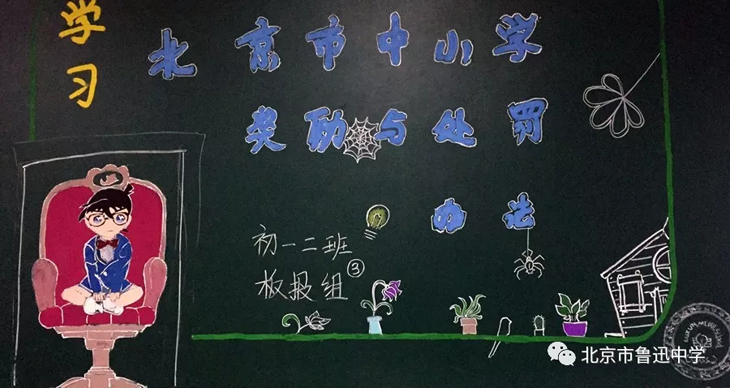 学习
北京市中小学
奖励与处罚
办法
初一二班
板报组③
北京市鲁迅中学